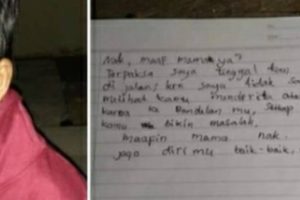 Nak, maap mama ya?
Terpaksa saya tinggal kan
di jalan, krn saya tidak
melihat kamu menderita
karna ke Bandalan mu, Setiap
kamu bikin masalah,
maapin mama nak.
jago diri mu baik-baik.